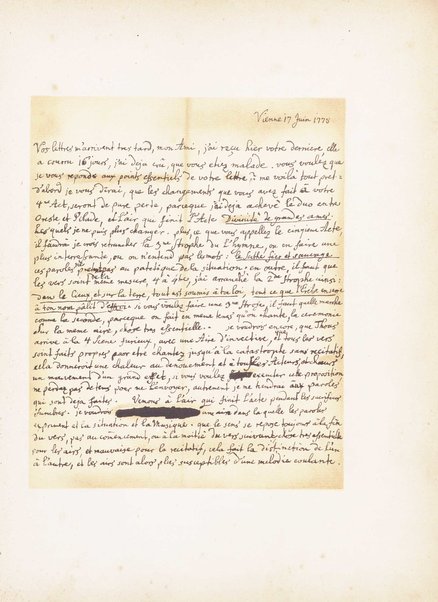 Vienne 17 Juin 1778
Vos lettres m'arrivent tres tard, mon Ami, j'ai reçu hier votre derniere elle
a couru 16 jours, j'ai deja crû, que vous etiez malade. vous voulez que
je vous reponde aux points essentiels de votre lettre: me voilà tout pret-
d'abord je vous dirai, que les changements que vous avez fait à votre
4me Act, seront de pure perte, parceque j'ai deja achevé le duo entre
Oreste et Pilade, et l'air que finit l'Acte Divinité de grandes ames
les quels je ne puis plus changer. plus ce que vous appellez le cinquiem Acte
il faudra je crois retrancher la 2me Strophe du L'hymne, ou en faire une
plus interessante, ou on n'entend pas les mots: le Scithe fier et sauvage
ces paroles au patetique de la situation. en outre, il faut que
les vers soint même mesure, 4 à 4he, j'ai arrangé la 2me Strophe ainsi:
Dans le Cieux et sur la terre, tout est soumis à ta loi, tout ce que l'Erebe enserre
à ton nom palit d'effroi. si vous voulez faire une 3me Strofe, il faut quelle marche
comme la seconde, parceque on fait en meme tems qu'on chante, la ceremonie
sur la meme aire, chose tres essentielle. je voudrois encore, que Thoas
arrive à la 4 Scene furieux, avec une Aire d'invective, et que tous les vers
soint faits propres pour etre chantez jusqu'à la catastrophe sans recitatifs
cela donneroit une chaleur au denouement et à tous les Acteurs du chœur,
un mouvement d'un grand effet, si vous voulez executer cette proposition
ne perdez pas de tems pour me l'envoyer, autrement je me tiendrai aux paroles
qui sont deja faites. Venons à l'air que finit l'acte pendant les sacrifices
funebres. je voudrois une aire dans la quelle les paroles
expriment et la situation et la Musique. que le sens se repose toujours à la fin
du vers, pas au comencement, ou à la moitié du vers suivant chose tres essentielle
pour les airs, et mauvaise pour la recitatif, cela fait la distinction de l'un
à l'autre, et les airs sont alors plus susceptibles d'une melodie coulante.